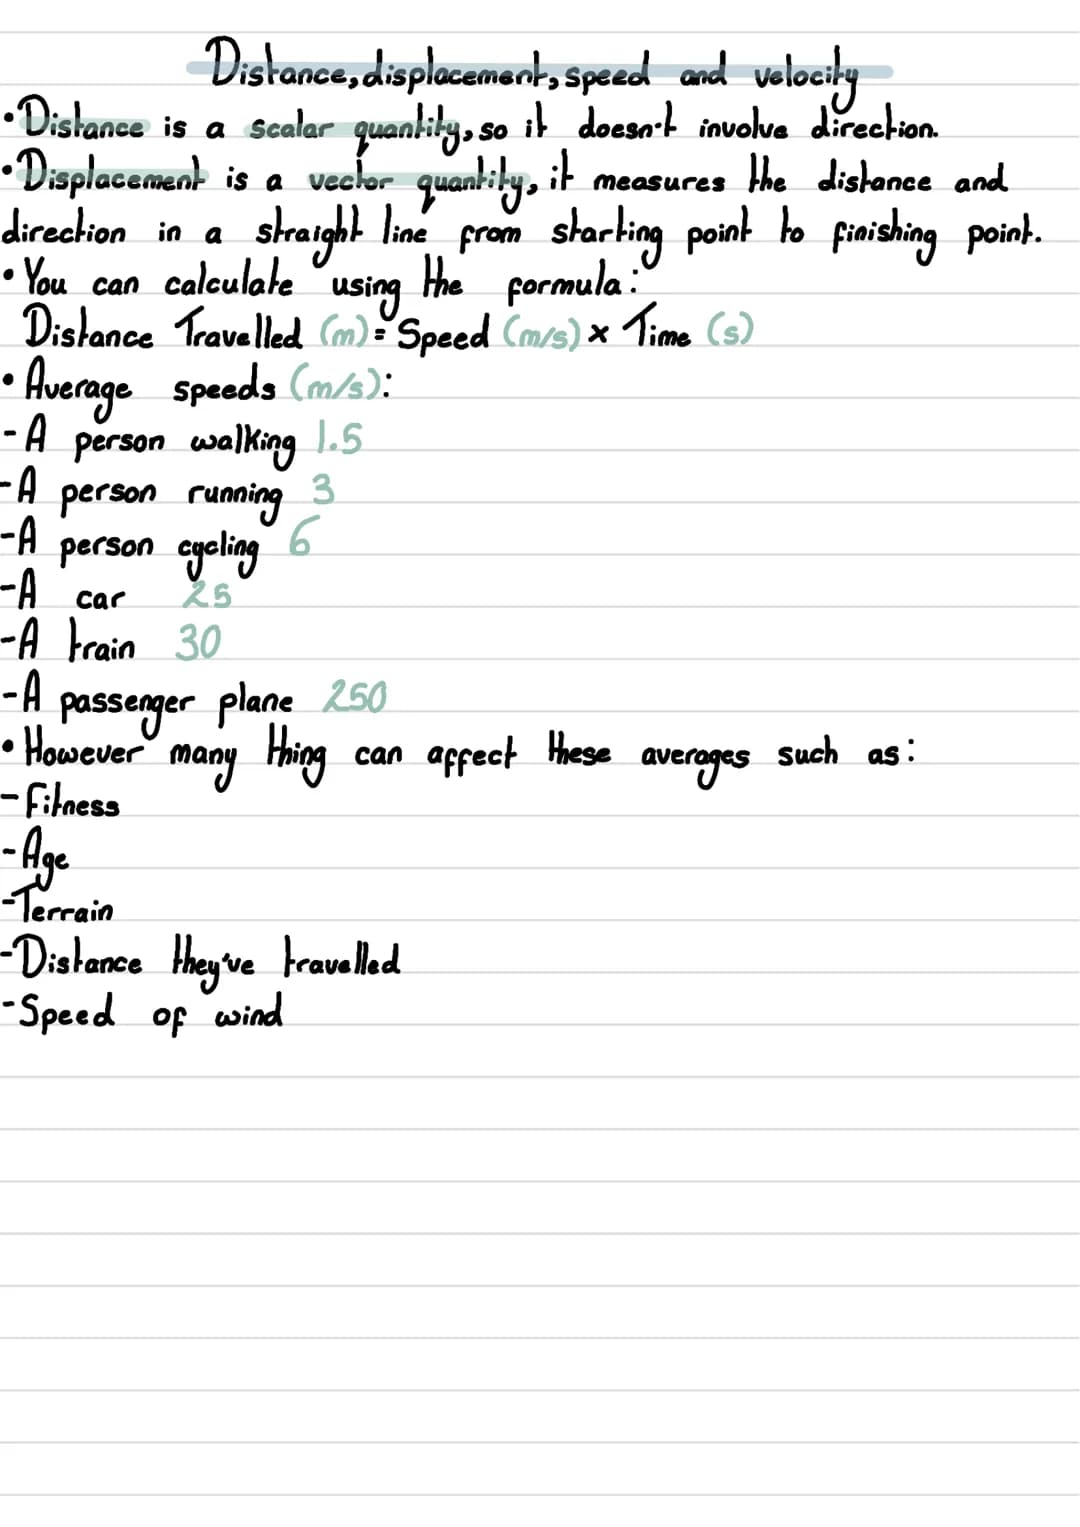 Distance, displacement, speed and velocity
• Distance is a scalar quantity, so it doesn't involve direction.
• Displacement is a vector quantity, it measures the distance and
direction in a straight line from starting point to finishing point.
• You can calculate using the formula:
Distance Travelled (m) = Speed (m/s) x Time (s)
• Average speeds (m/s):
- A person walking 1.5
- A person running 3
- A person cycling 6
- A car 25
- A train 30
- A passenger plane 250
• However many thing can affect these averages such as:
- Fitness
- Age
- Terrain
- Distance they've travelled
- Speed of wind